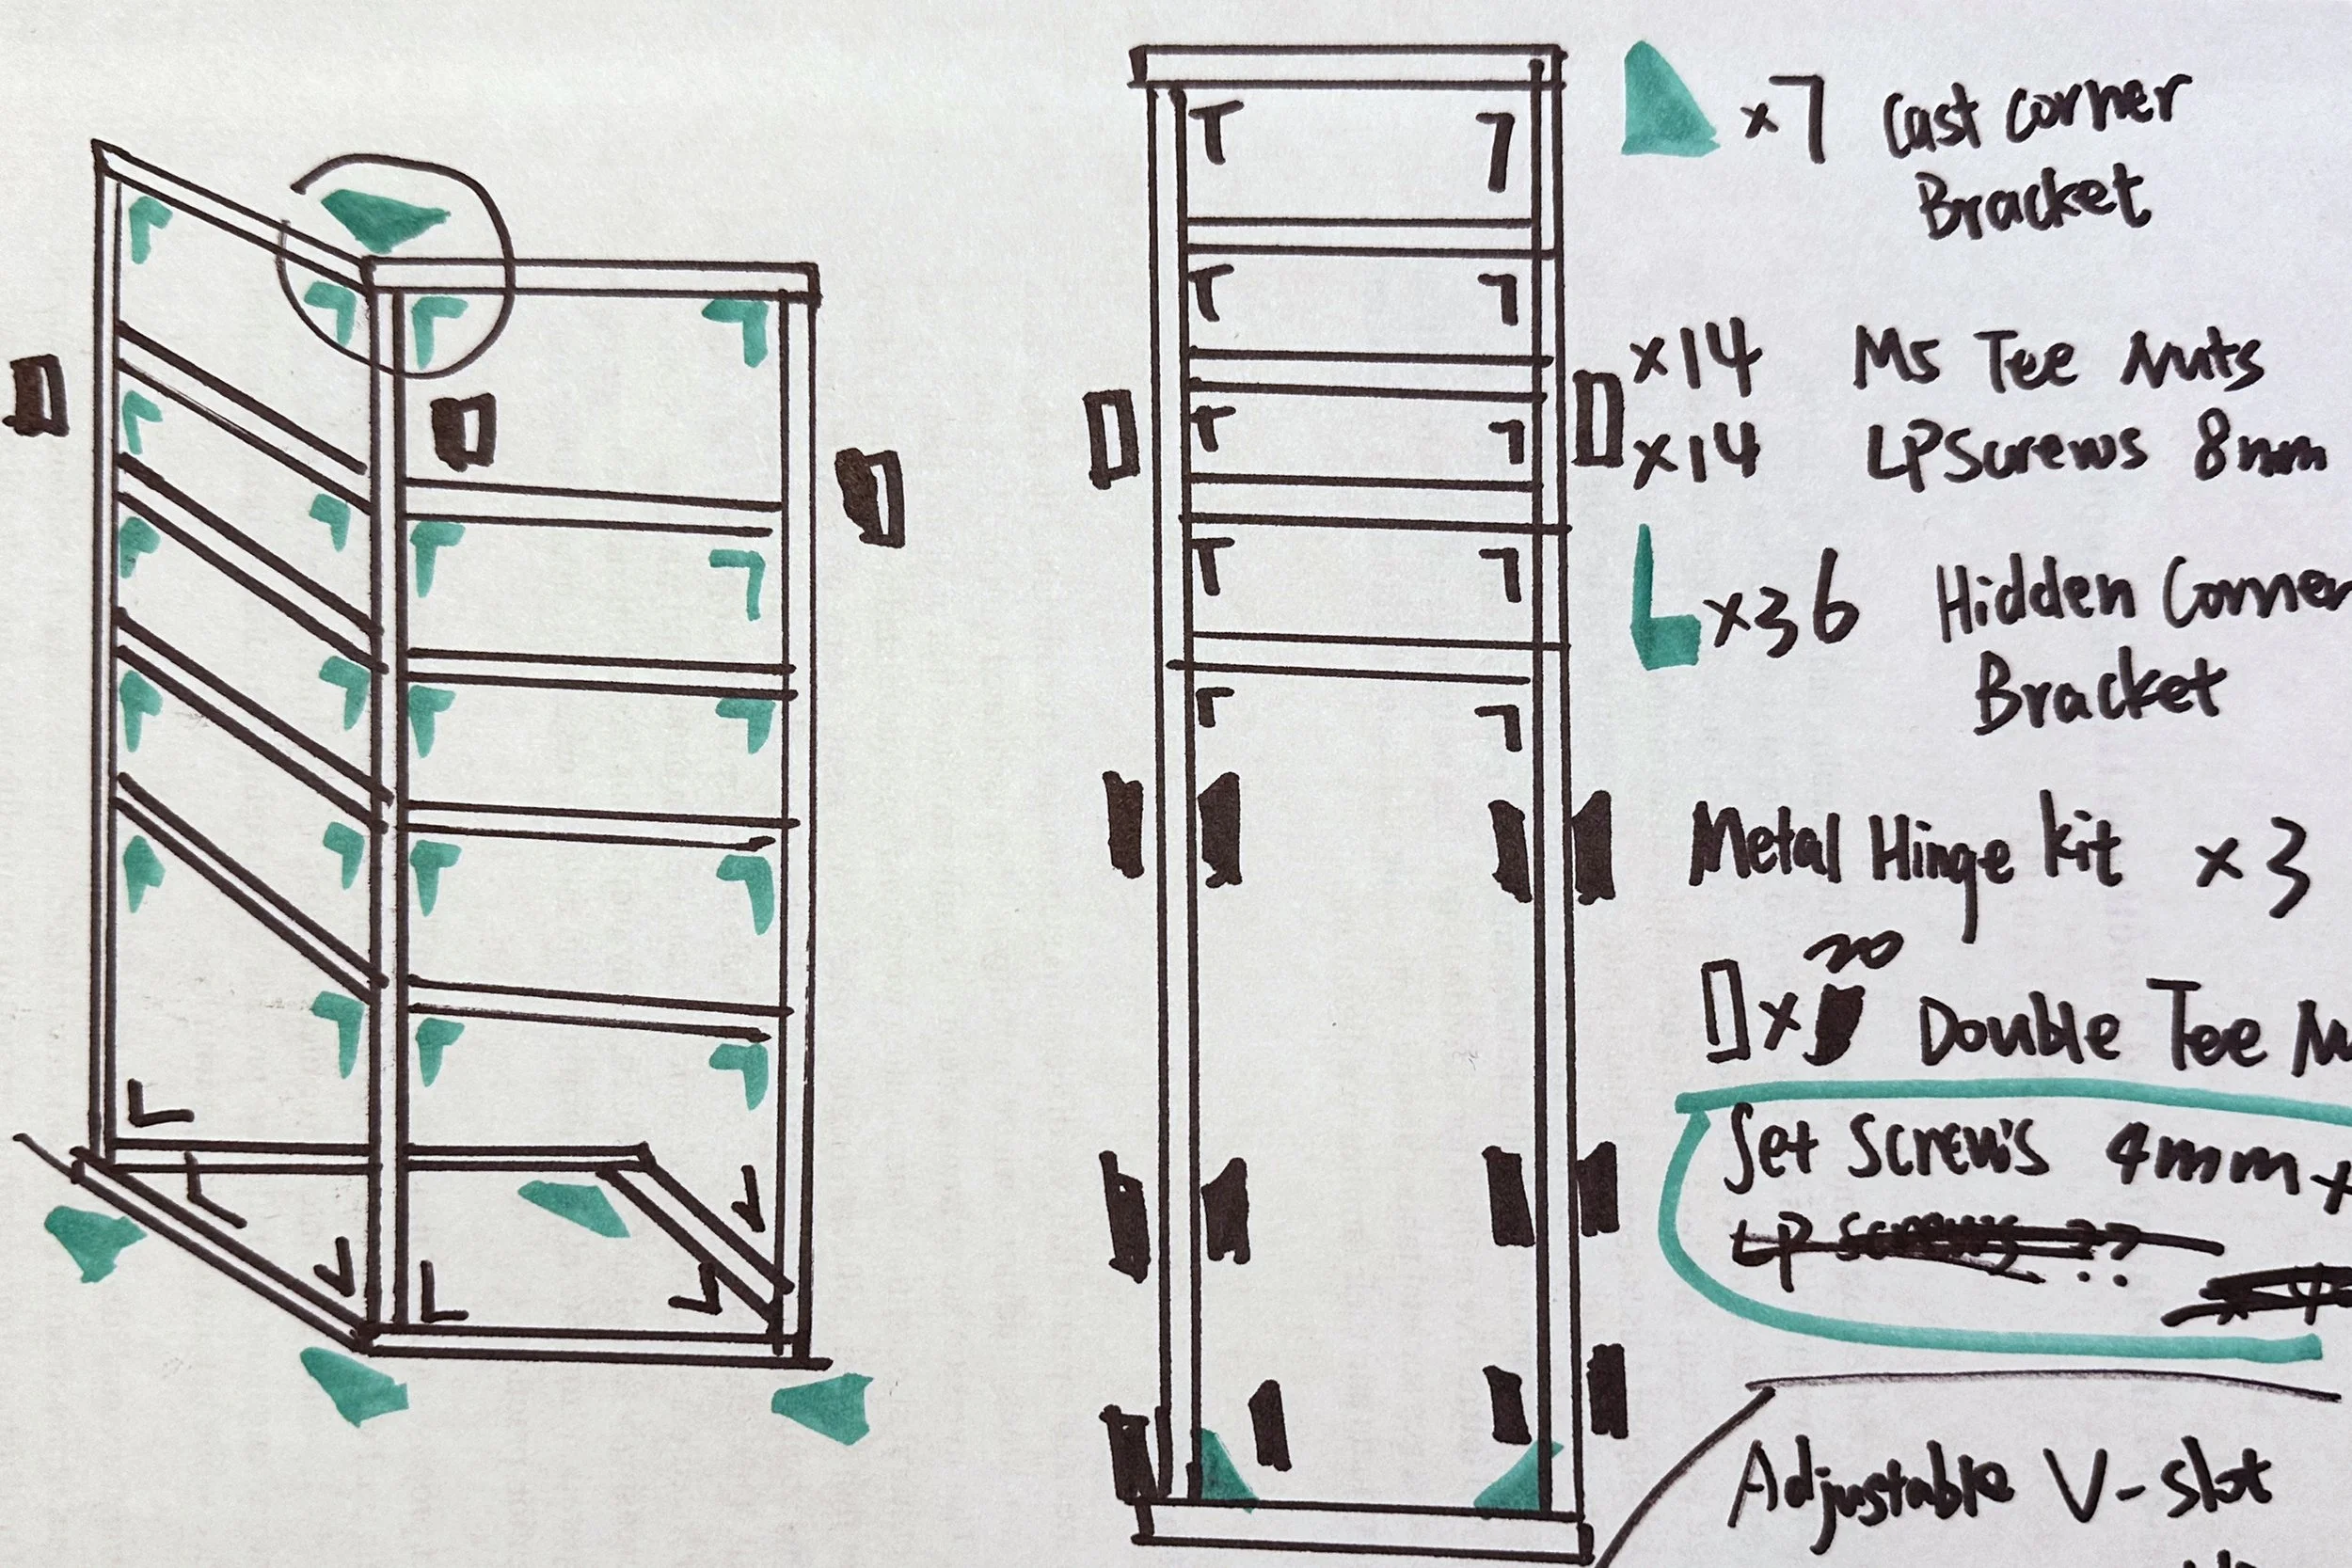 x7 Cast corner
Bracket
x14 M5 Tee Nuts
x14 LP Screws 8mm
x36 Hidden Corner
Bracket
Metal Hinge kit x3
20
x Double Tee
Set Screw's 4mm x
LP Screws ??
Adjustable V-slot